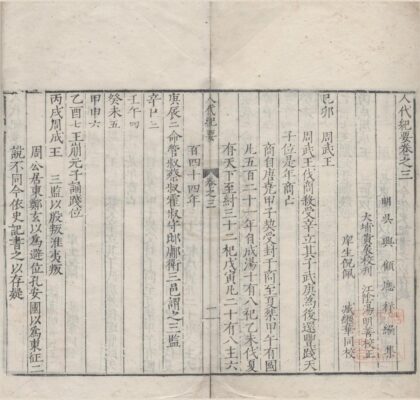 人代紀要卷之三
明吳興顧應祥編集
校刊
江陰 明 校正
庠生倪佩 臧繼華同校
己卯 周武王
周武王伐商殺受辛立其子武庚為後還豐踐天
子位是年商亡
商自唐堯甲子契受封于商至夏桀甲午有國
凡五百二十一年自成湯十有八祀乙未伐夏
有天下至紂三十二祀戊寅凡二十有八主六
百四十四年
人代紀要 卷之三 一
庚辰二命管叔蔡叔霍叔守邶鄘衛三邑謂之三監
辛巳三
壬午四
癸未五
甲申六
乙酉七王崩元子誦踐位
丙戌周成王 三監以殷叛淮夷叛
周公居東鄭玄以為避位孔安國以為東征二
說不同今依史記書之以存疑